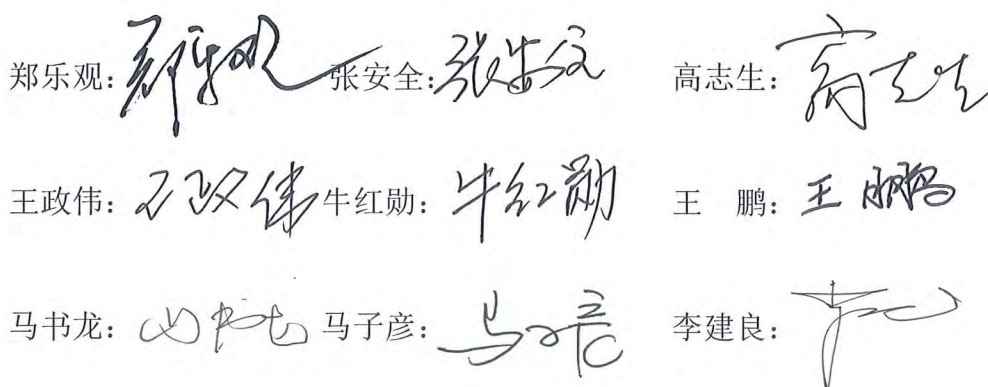 郑乐观：郑乐观 张安全：张安全 高志生：高志生
王政伟：王政伟 牛红勋：牛红勋 王　鹏：王鹏
马书龙：马书龙 马子彦：马子彦 李建良：